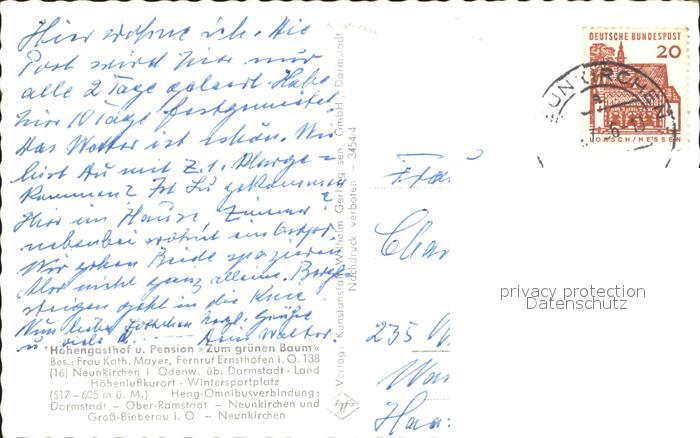 Hier wohne ich. Die
Post wird hier nur
alle 2 Tage geleert. Habe
hier 10 Tage festgemietet.
Das Wetter ist schön. Wie
bist Du mit Z.1.
kommen? Ist Lu gekommen
Hier im Hause, Zimmer
nebenbei wohnt ein
Wir gehen Beide spazieren
Aber nicht ganz alleine. Berge
steigen geht in die Knie
Nun liebe herzl. Grüße
u. viele Dein Walter.
Höhengasthof u. Pension »Zum grünen Baum«
Bes.: Frau Kath. Mayer, Fernruf Ernsthofen i. O. 138
(16) Neunkirchen i Odenw. üb. Darmstadt - Land
Höhenluftkurort - Wintersportplatz
(517 – 605 m ü. M.) Heag-Omnibusverbindung:
Darmstadt – Ober-Ramstadt – Neunkirchen und
Groß-Bieberau i. O. – Neunkirchen
Verlag: Kunstanstalt Wilhelm Gerling sen. GmbH. Darmstadt
Nachdruck verboten – 3454/4
DEUTSCHE BUNDESPOST
20
LORSCH/HESSEN
NEUNKIRCHEN
Frau
235 W
privacy protection
Datenschutz